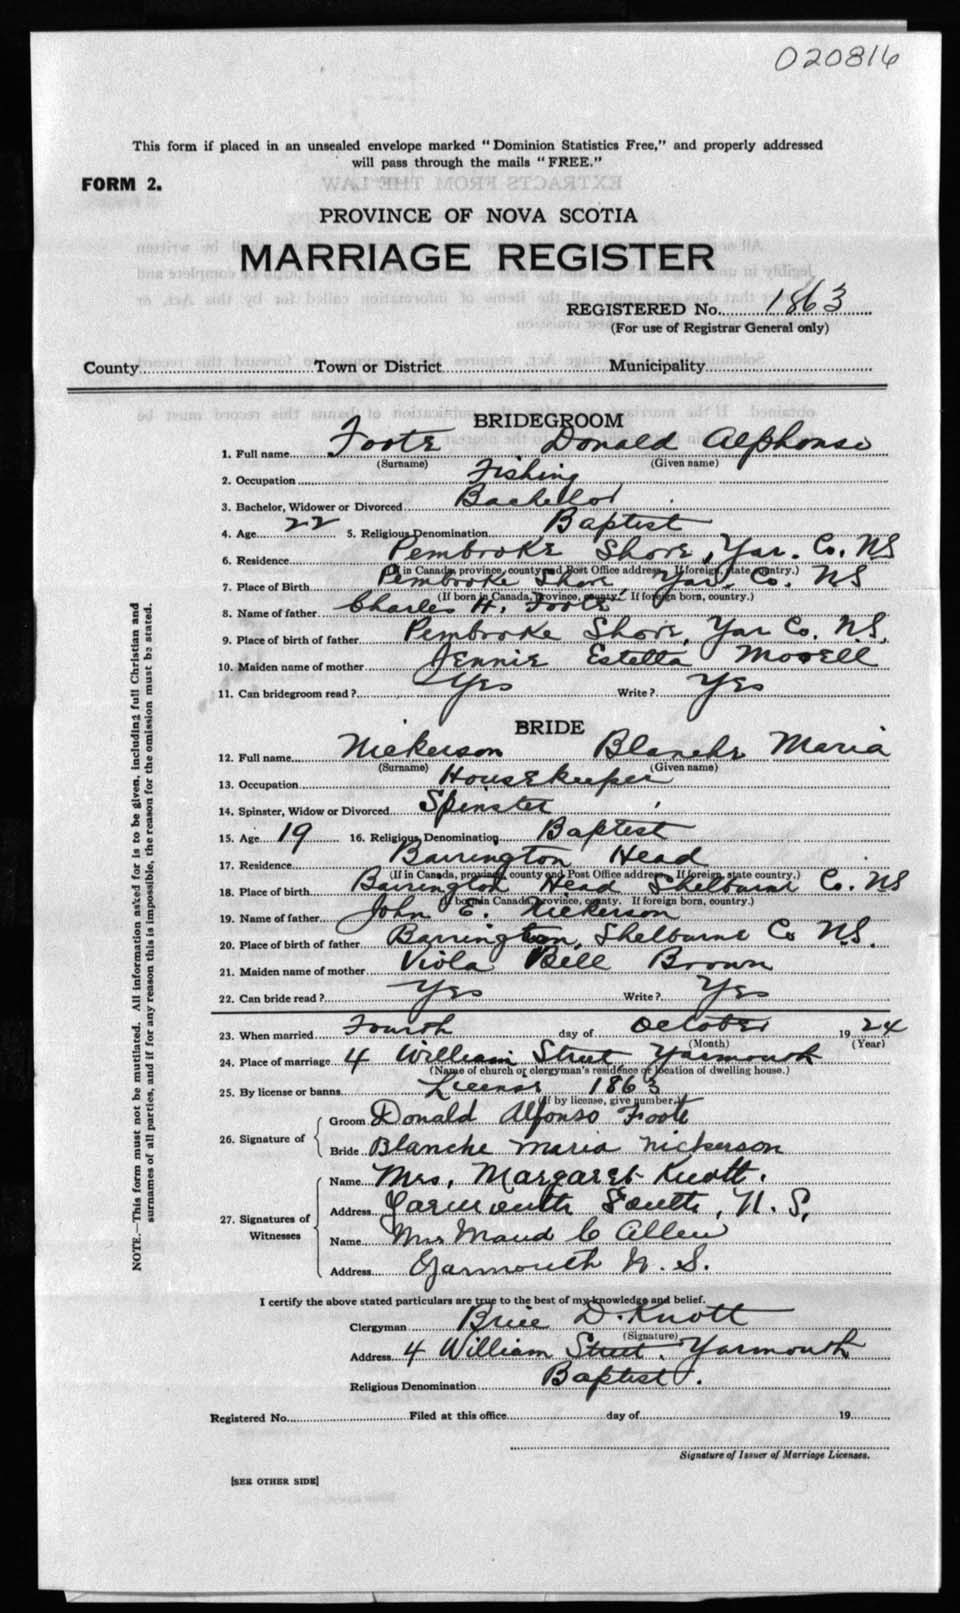 020816
This form if placed in an unsealed envelope marked "Dominion Statistics Free," and properly addressed
will pass through the mails "FREE."
FORM 2.
PROVINCE OF NOVA SCOTIA
MARRIAGE REGISTER
REGISTERED No. 1863
(For use of Registrar General only)
County Town or District Municipality
BRIDEGROOM
1. Full name Foote Donald Alphonso
(Surname) (Given name)
2. Occupation Fishing
3. Bachelor, Widower or Divorced Bachelor
4. Age 22 5. Religious Denomination Baptist
6. Residence Pembroke Shore, Yar. Co. NS
(If in Canada, province, county and Post Office address. If foreign, state country.)
7. Place of Birth Pembroke Shore Yar. Co. NS
(If born in Canada, province, county. If foreign born, country.)
8. Name of father Charles H. Foote
9. Place of birth of father Pembroke Shore, Yar Co. N.S.
10. Maiden name of mother Jennie Estella
11. Can bridegroom read? Yes Write? Yes
BRIDE
12. Full name Nickerson Blanche Maria
(Surname) (Given name)
13. Occupation Housekeeper
14. Spinster, Widow or Divorced Spinster
15. Age 19 16. Religious Denomination Baptist
17. Residence Barrington Head
(If in Canada, province, county and Post Office address. If foreign, state country.)
18. Place of birth Barrington Head Shelburne Co. NS
(If born in Canada, province, county. If foreign born, country.)
19. Name of father John E. Nickerson
20. Place of birth of father Barrington, Shelburne Co N.S.
21. Maiden name of mother Viola Bell Brown
22. Can bride read? Yes Write? Yes
23. When married Fourth day of October 1924
(Month) (Year)
24. Place of marriage 4 William Street Yarmouth
(Name of church or clergyman's residence or location of dwelling house.)
25. By license or banns License 1863
(If by license, give number.)
26. Signature of
Groom Donald Alfonso Foote
Bride Blanche Maria Nickerson
27. Signatures of Witnesses
Name Mrs. Margaret Knott.
Address Yarmouth South, N.S.
Name Mrs Maud C Allen
Address Yarmouth N.S.
I certify the above stated particulars are true to the best of my knowledge and belief.
Clergyman Brice D. Knott
(Signature)
Address 4 William Street, Yarmouth
Religious Denomination Baptist.
Registered No. Filed at this office day of 19
Signature of Issuer of Marriage Licenses.
[SEE OTHER SIDE]
NOTE.—This form must not be mutilated. All information asked for is to be given, including full Christian and
surnames of all parties, and if for any reason this is impossible, the reason for the omission must be stated.